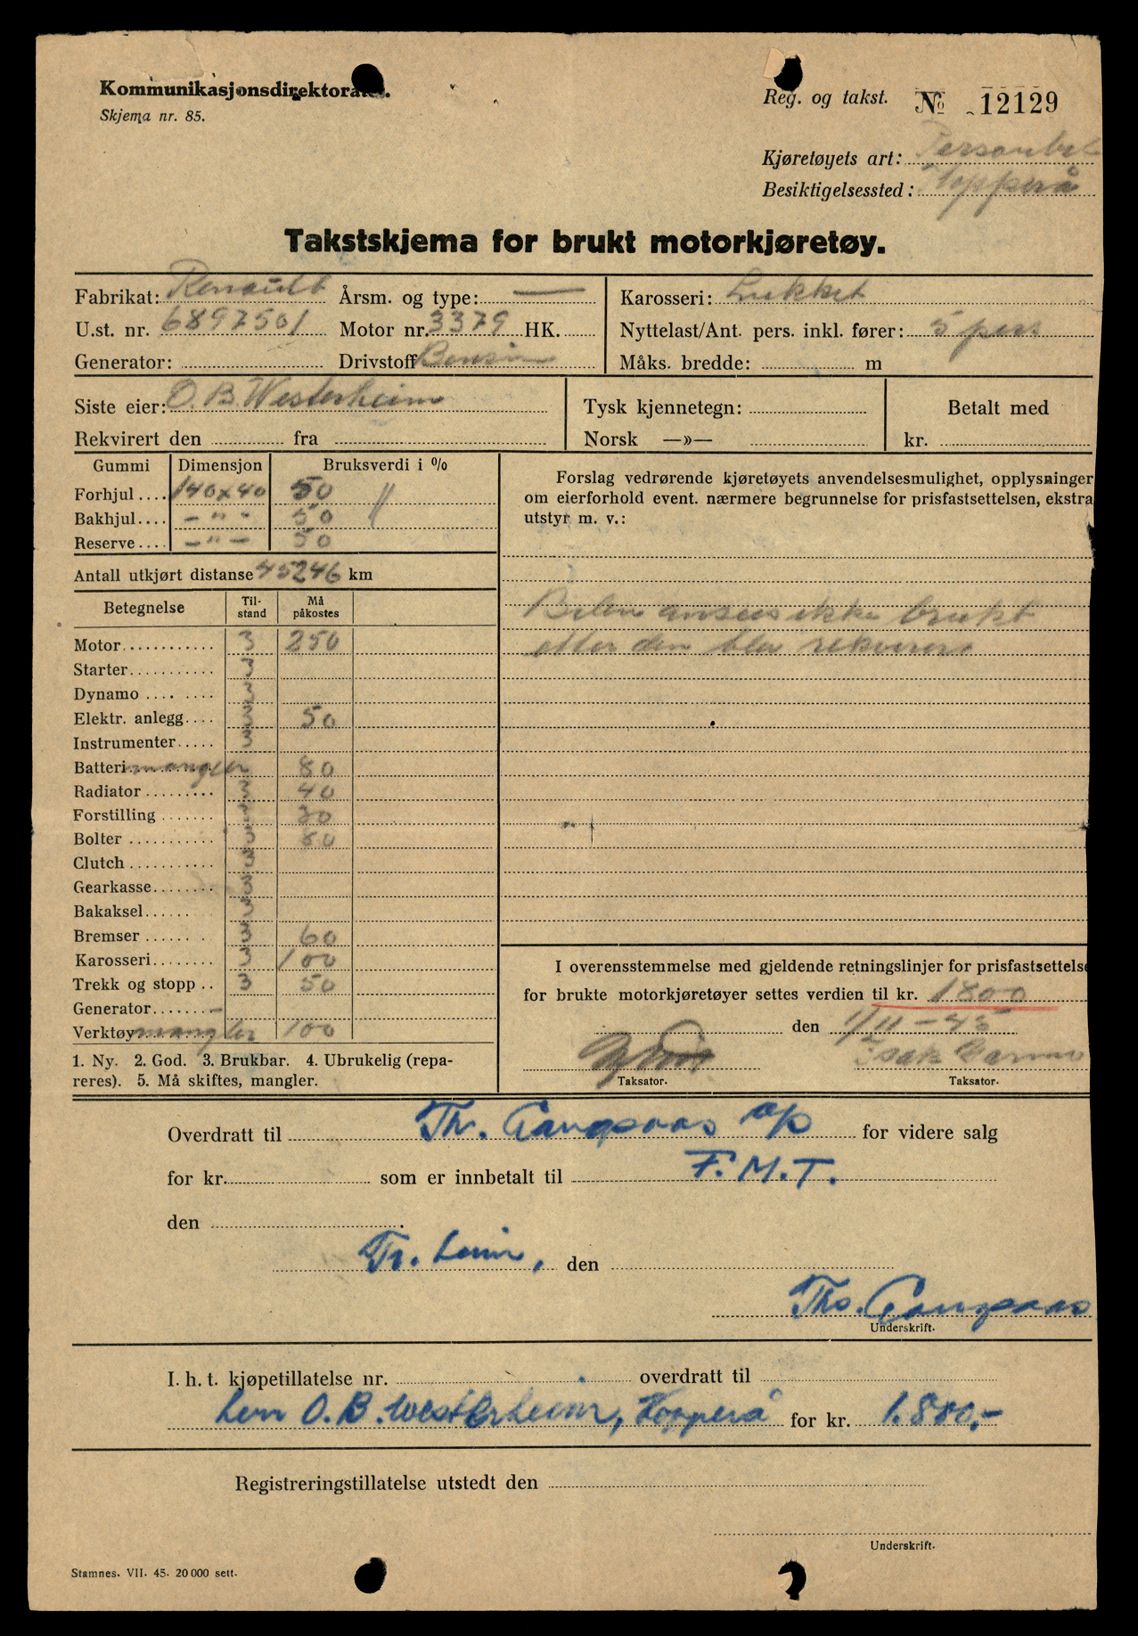 Kommunikasjonsdirektoratet.
Skjema nr. 85.
Reg. og takst. № 12129
Kjøretøyets art: Personbil
Besiktigelsessted: Kopperå
Takstskjema for brukt motorkjøretøy.
Fabrikat: Renault Årsm. og type: — Karosseri: Lukket
U.st. nr. 6897501 Motor nr. 3379 HK. Nyttelast/Ant. pers. inkl. fører: 5 pers
Generator: Drivstoff Bensin Måks. bredde: m
Siste eier: O. B. Westerheim Tysk kjennetegn: Betalt med
Rekvirert den fra Norsk —»— kr.
Gummi Dimensjon Bruksverdi i %
Forhjul .... 140x40 50 "
Bakhjul .... - " - 50 "
Reserve .... - " - 50
Antall utkjørt distanse 45246 km
Betegnelse Til-stand Må påkostes
Motor 3 250
Starter 3
Dynamo 3
Elektr. anlegg 3 50
Instrumenter 3
Batteri mangler 80
Radiator 3 40
Forstilling 3 30
Bolter 3 80
Clutch 3
Gearkasse 3
Bakaksel 3
Bremser 3 60
Karosseri 3 100
Trekk og stopp .. 3 50
Generator -
Verktøy mangler 100
1. Ny. 2. God. 3. Brukbar. 4. Ubrukelig (repa-
reres). 5. Må skiftes, mangler.
Forslag vedrørende kjøretøyets anvendelsesmulighet, opplysninger
om eierforhold event. nærmere begrunnelse for prisfastsettelsen, ekstra
utstyr m. v.:
Bilen ansees ikke brukt
etter den blev rekvirert
I overensstemmelse med gjeldende retningslinjer for prisfastsettelse
for brukte motorkjøretøyer settes verdien til kr. 1800
den 1/11-45
Isak
Taksator. Taksator.
Overdratt til Th. Gangsaas A/S for videre salg
for kr. som er innbetalt til F.M.T.
den
Tr.heim, den
Ths. Gangsaas
Underskrift.
I. h. t. kjøpetillatelse nr. overdratt til
herr O. B. Westerheim, Kopperå for kr. 1.800,-
Registreringstillatelse utstedt den
Underskrift.
Stamnes. VII. 45. 20 000 sett.